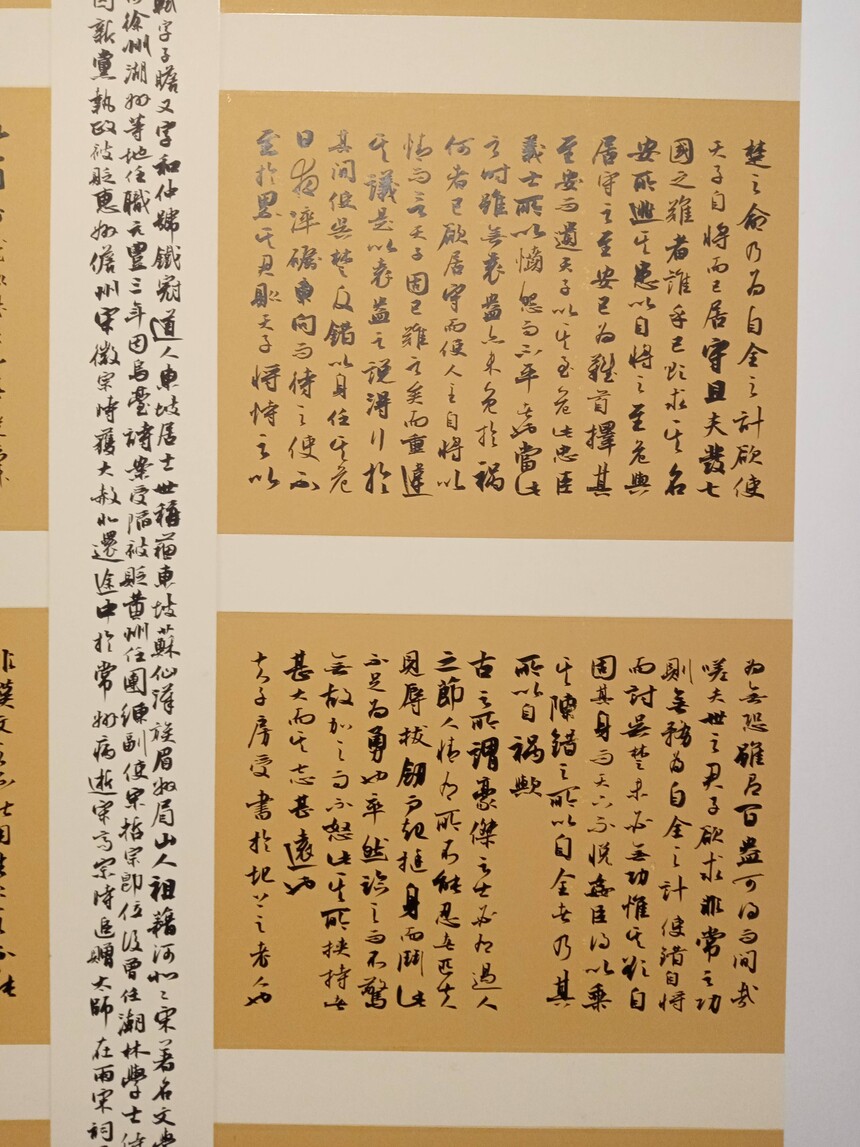 楚之命乃为自全之计欲使
天子自将而已居守且夫发七
國之难者谁乎已欲求其名
安所逃其患以自将之至危與
居守之至安已为難首擇其
至安而遗天子以其至危此忠臣
義士所以憤怨而不平者也當此
之时雖無袁盎亦未免於祸
何者已欲居守而使人主自将以
情而言天子固已難之矣而重違
其議是以袁盎之说得行於
其间使吴楚反错以身任其危
日夜淬礪東向而待之使不
至於累其君則天子将恃之以
为無恐雖有百盎可得而间哉
嗟夫世之君子欲求非常之功
則無務为自全之计使错自将
而討吴楚未必無功惟其欲自
固其身而天子不悦姦臣得以乘
其隙错之所以自全者乃其
所以自祸歟
古之所謂豪傑之士必有過人
之節人情有所不能忍者匹夫
見辱拔劍而起挺身而鬪此
不足为勇也卒然臨之而不驚
無故加之而不怒此其所挾持者
甚大而其志甚遠也
夫子房受書於圯上之老人也
軾字子瞻又字和仲號鐵冠道人東坡居士世稱蘇東坡蘇仙漢族眉州眉山人祖籍河北宋著名文學
徐州湖州等地任職元豐三年因烏臺詩案受陷被貶黄州任團練副使宋哲宗即位後曾任翰林學士侍
因新黨執政被貶惠州儋州宋徽宗時獲大赦北還途中於常州病逝宋高宗時追贈太師在兩宋詞